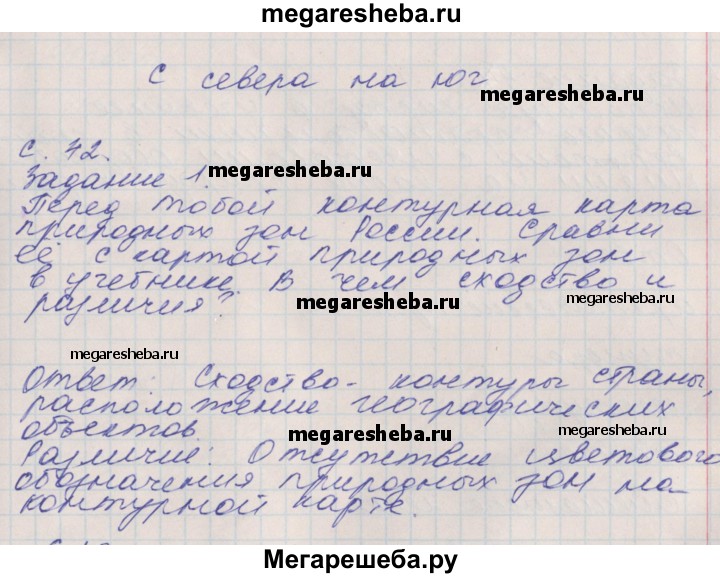 megaresheba.ru
С севера на юг
megaresheba.ru
с. 42.
Задание 1.
megaresheba.ru
Перед тобой контурная карта
природных зон России. Сравни
её с картой природных зон
в учебнике. В чем сходство и
различия?
megaresheba.ru
megaresheba.ru
megaresheba.ru
Ответ: Сходство - контуры страны,
расположение географических
объектов.
megaresheba.ru
megaresheba.ru
Различие: Отсутствие цветового
обозначения природных зон на
контурной карте.
Мегарешеба.ру